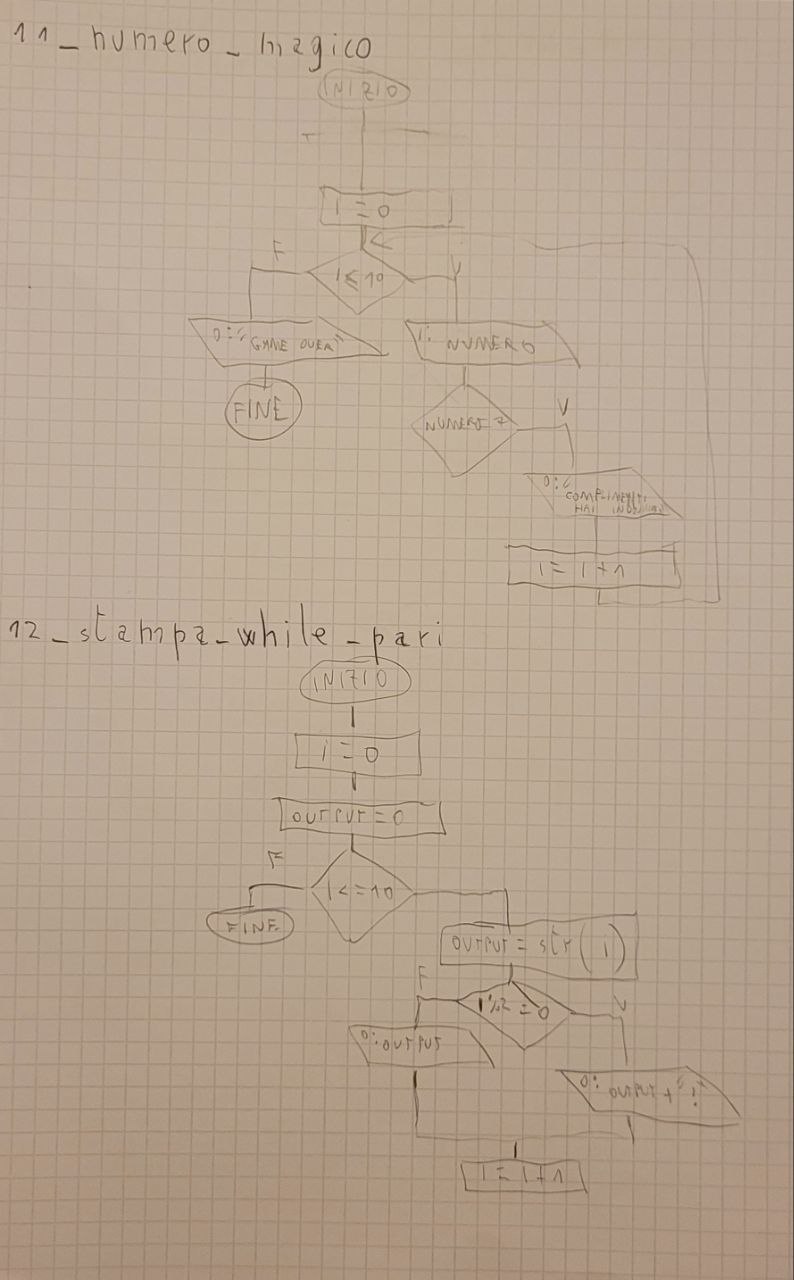 11_numero_magico
INIZIO
I = 0
F
V
I ≤ 10
O: "GAME OVER"
I: NUMERO
FINE
NUMERO 7
V
O: "
COMPLIMENTI
HAI
I = I + 1
12_stampa_while_pari
INIZIO
i = 0
OUTPUT = 0
F
I <= 10
FINE
OUTPUT = str(i)
F
I%2 = 0
V
O: OUTPUT
O: OUTPUT + "!"
I = I + 1